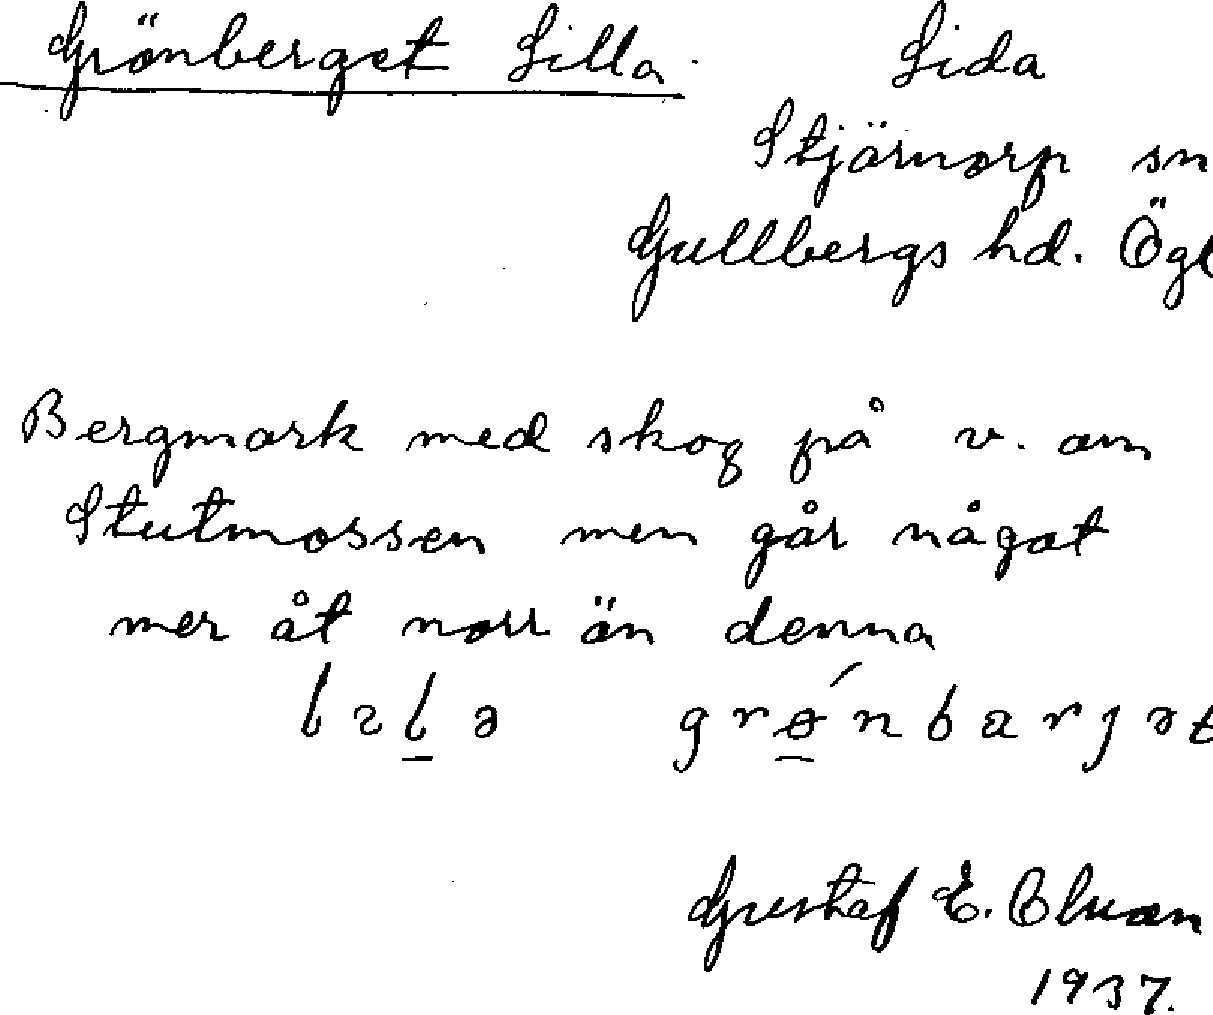 Grönberget Lilla Lida
Stjärnorp sn
Gullbergs hd. Ögl
Bergmark med skog på v. om
Stutmossen men går något
mer åt norr än denna
Gustaf E.
1937.